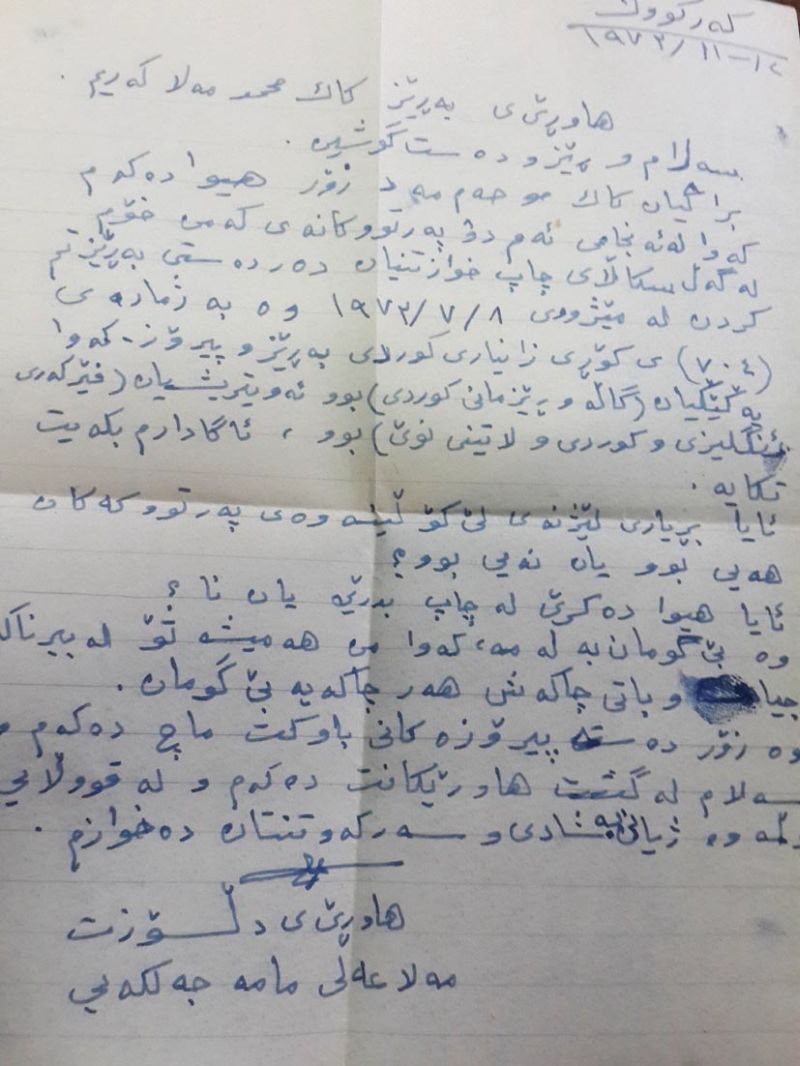 کەرکووک
١٢-١١/١٩٧٣
هاوڕێ ی بەڕێز کاک محمد مەلا کەریم .
سەلام و ڕێز و دەست گوشین .
برا گیان کاک موحەمەد زۆر هیوا دەکەم
کەوا لە ئەنجامی ئەم دۆ پەرتووکانەی کەمن خۆم
لەگەڵ سکاڵای چاپ خوازتنیان دەردەستی بەڕێزتم
کردن لە مێژووی ٨/٧/١٩٧٣ وە بە ژمارەی
(٧٠٤) ی کۆڕی زانیاری کوردی بەڕێز و پیرۆز - کەوا
یەکێکیان (گاڵە و ڕێزمانی کوردی) بوو ئەویتریشیان (فێرکەری
ئنگلیزی و کوردی و لاتینی نوێ) بوو ، ئاگادارم بکەیت
تکایە .
ئایا بڕیاری لێژنەی لێ کۆڵینەوەی پەرتووکەکان
هەیی بوو یان نەیی بوو؟
ئایا هیوا دەکرێ لە چاپ بدرێ یان نا ؟
وە بێ گومان بە لە مە، کەوا من هەمیشە تۆ لە بیر ناکە
جیا وباتی چاکەش هەر چاکەیە بێ گومان .
وە زۆر دەستە پیرۆزەکانی باوکت ماچ دەکەم و
سەلام لە گشت هاورێکانت دەکەم و لە قووڵایی
دڵمەوە ژیانی بە شادی و سەرکەوتنتان دەخوازم .
هاوڕێ ی دڵسۆزت
مەلا عەلی مامە جەلکەیی